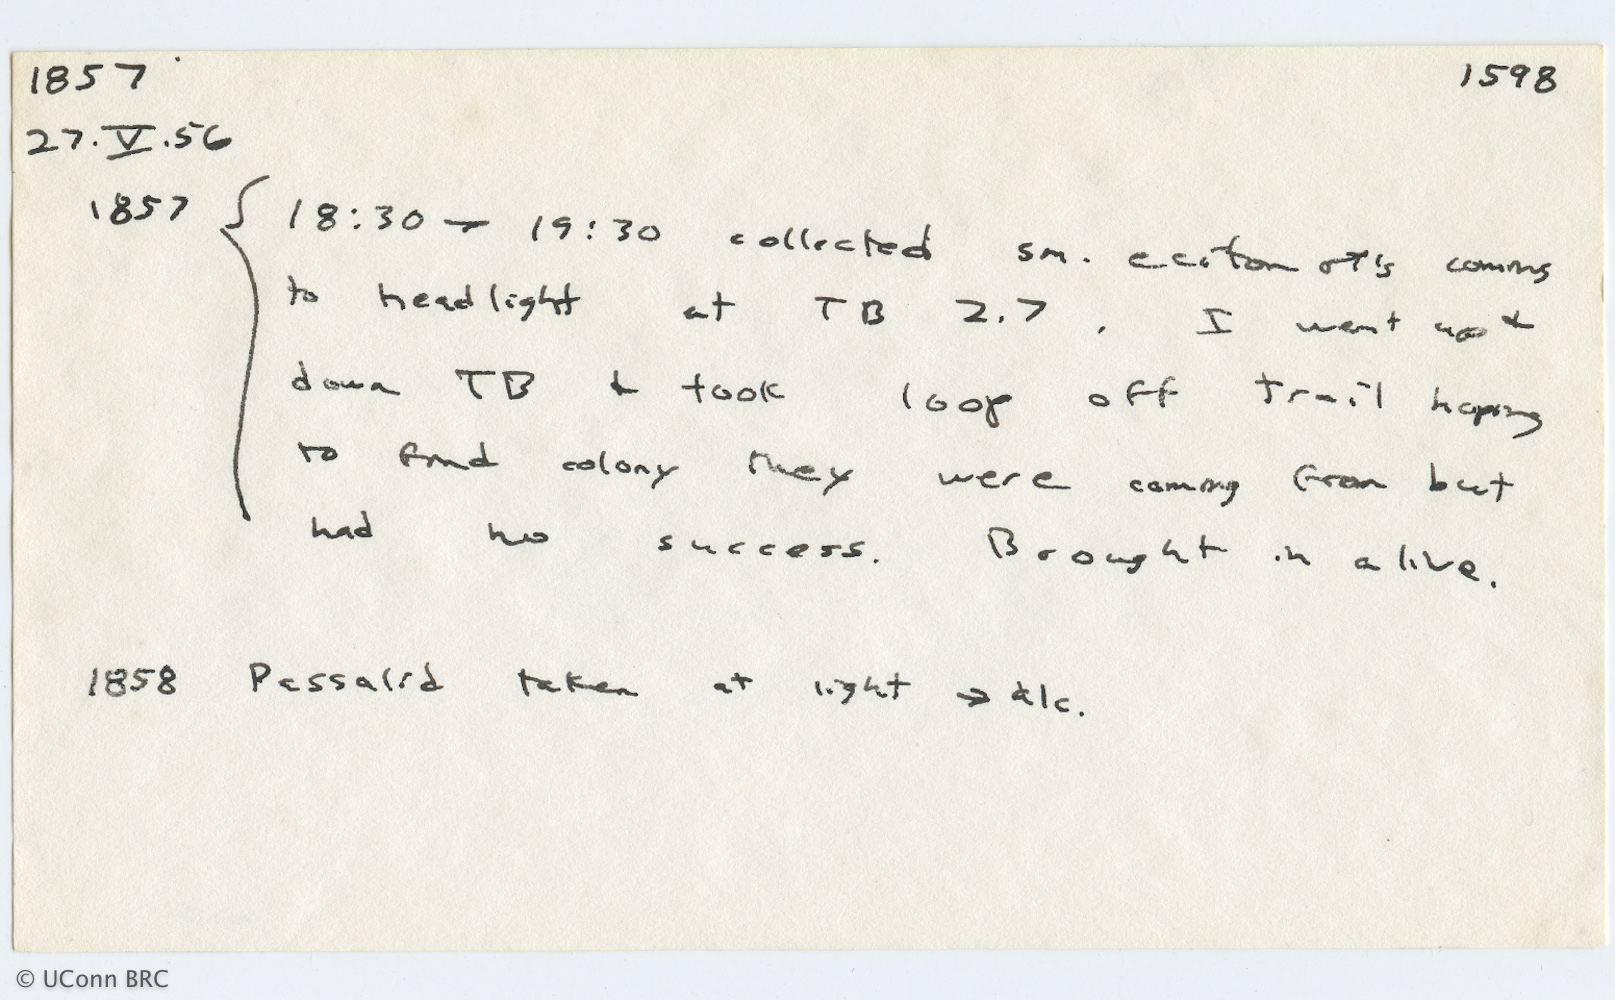 1857 1598
27.V.56
1857 { 18:30 → 19:30 collected sm. eciton ♂♂'s coming
to headlight at TB 2.7. I went up &
down TB & took loop off trail hoping
to find colony they were coming from but
had no success. Brought in alive.
1858 Passalid taken at light → alc.
© UConn BRC